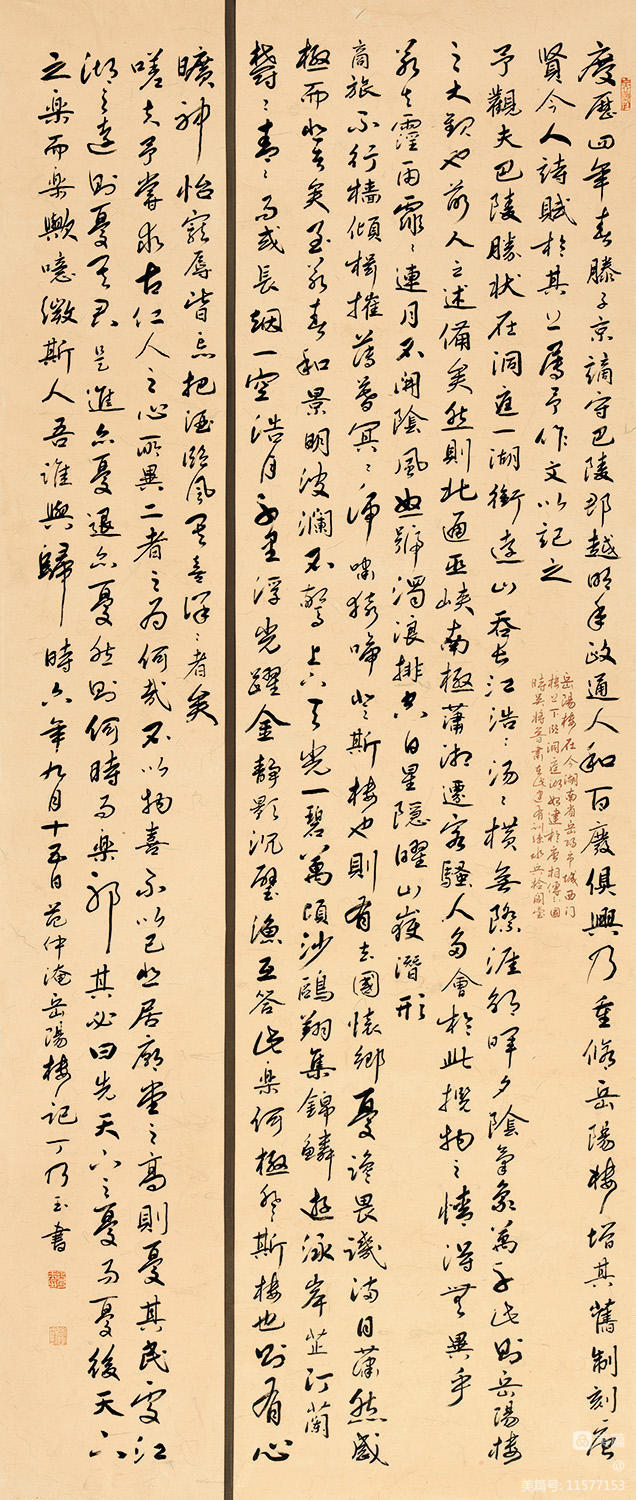 慶歷四年春滕子京謫守巴陵郡越明年政通人和百廢俱興乃重修岳陽樓增其舊制刻唐
賢今人詩賦於其上屬予作文以記之
予觀夫巴陵勝狀在洞庭一湖銜遠山吞長江浩〻湯〻橫無際涯朝暉夕陰氣象萬千此則岳陽樓
之大觀也前人之述備矣然則北通巫峽南極瀟湘遷客騷人多會於此攬物之情得無異乎
若夫霪雨霏〻連月不開陰風怒號濁浪排空日星隱曜山嶽潛形
商旅不行檣傾楫摧薄暮冥〻虎嘯猿啼登斯樓也則有去國懷鄉憂讒畏譏滿目蕭然感
極而悲者矣至若春和景明波瀾不驚上下天光一碧萬頃沙鷗翔集錦鱗遊泳岸芷汀蘭
鬱〻青〻而或長煙一空浩月千里浮光躍金靜影沉璧漁互答此樂何極登斯樓也則有心
曠神怡寵辱皆忘把酒臨風其喜洋〻者矣
嗟夫予嘗求古仁人之心或異二者之為何哉不以物喜不以己悲居廟堂之高則憂其民處江
湖之遠則憂其君是進亦憂退亦憂然則何時而樂耶其必曰先天下之憂而憂後天下
之樂而樂歟噫微斯人吾誰與歸時六年九月十五日范仲淹岳陽樓記丁乃玉書
岳陽樓在今湖南省岳陽市城西門
樓上下臨洞庭湖始建於唐相傳三國
時吳將魯肅在此建有訓練水兵檢閱臺
美篇号: 11577153